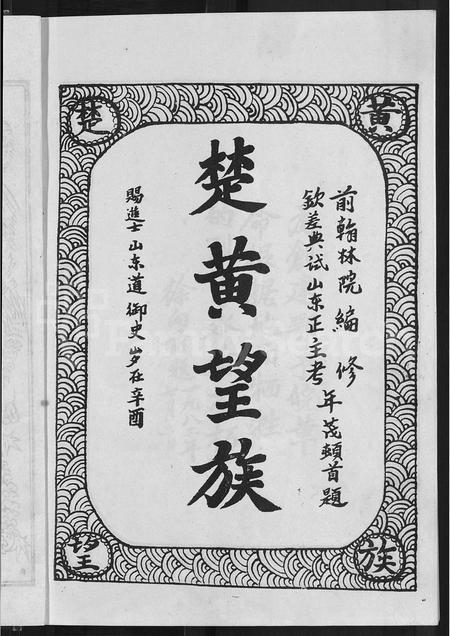 黄
楚
族
望
前翰林院编修
钦差典试山东正主考 年茂頓首題
楚黄望族
賜進士山东道御史岁在辛酉